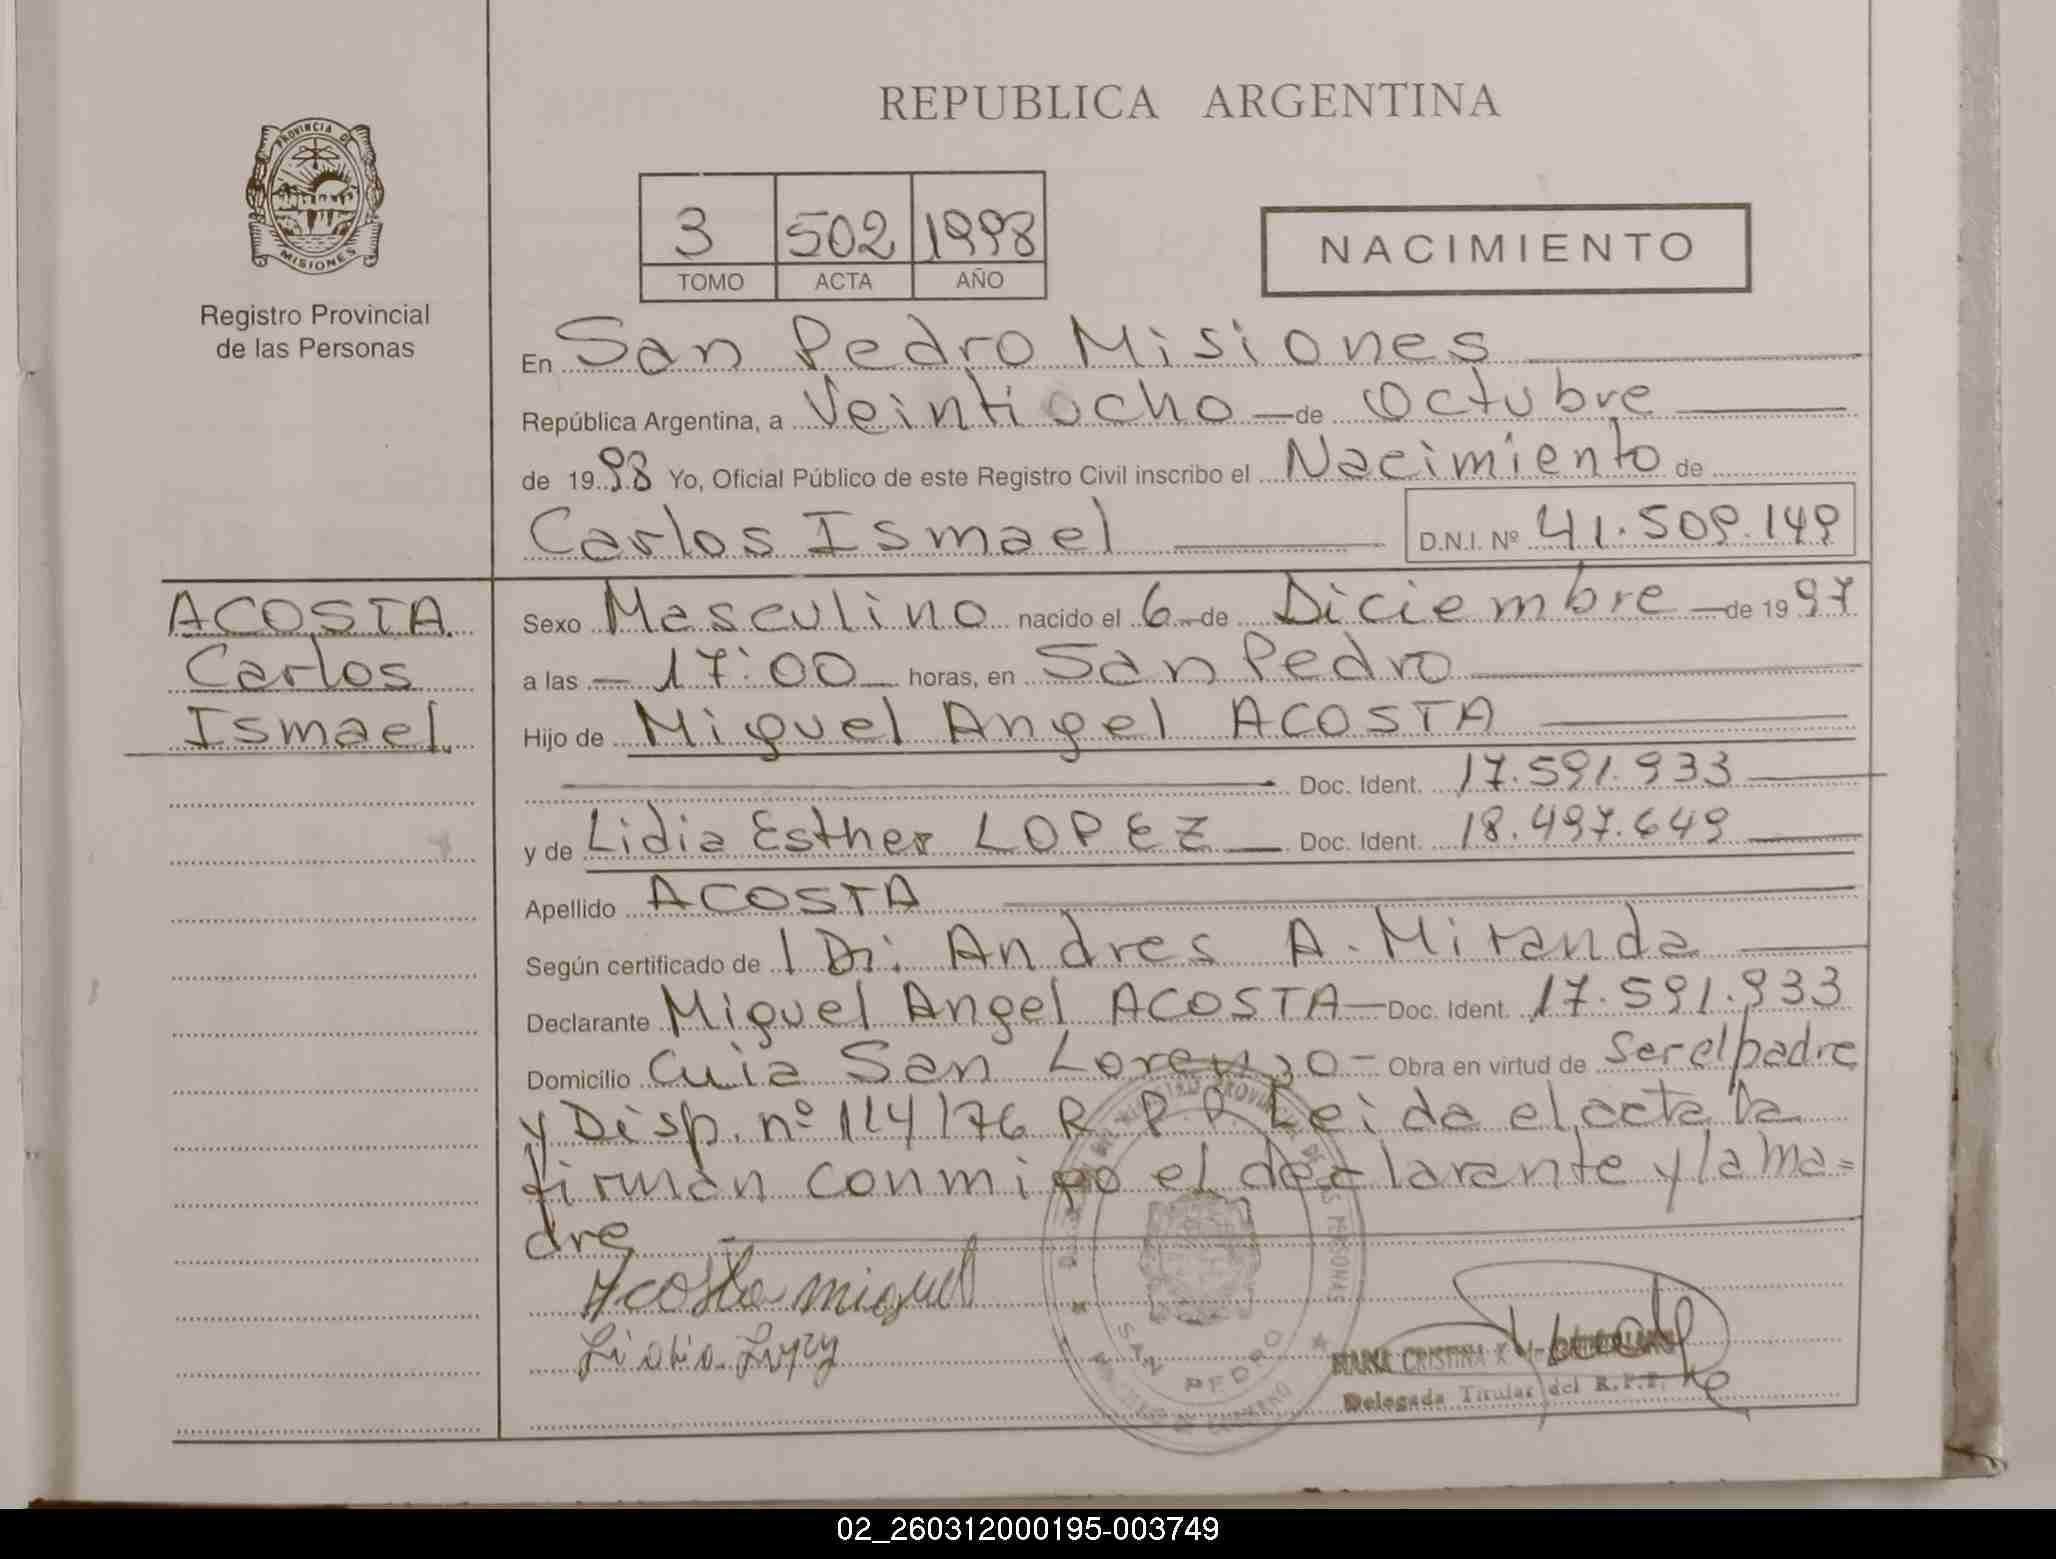 REPUBLICA ARGENTINA
PROVINCIA DE
MISIONES
Registro Provincial
de las Personas
3 502 1998
TOMO ACTA AÑO
NACIMIENTO
En San Pedro Misiones
República Argentina, a Veintiocho de Octubre
de 1998 Yo, Oficial Público de este Registro Civil inscribo el Nacimiento de
Carlos Ismael D.N.I. Nº 41.509.149
ACOSTA
Carlos
Ismael
Sexo Masculino nacido el 6 de Diciembre de 1997
a las 17:00 horas, en San Pedro
Hijo de Miguel Angel ACOSTA
Doc. Ident. 17.591.933
y de Lidia Esther LOPEZ Doc. Ident. 18.497.649
Apellido ACOSTA
Según certificado de Dr. Andres A. Miranda
Declarante Miguel Angel ACOSTA Doc. Ident. 17.591.933
Domicilio Cuia San Lorenzo Obra en virtud de Ser el padre
y Disp. nº 114/76 R.P.P. Leida el acta la
firman conmigo el declarante y la ma=
dre
Acosta miguel
Lidia Lopez
SAN PEDRO
MARIA CRISTINA
Delegada Titular del R.P.P.
02_260312000195-003749